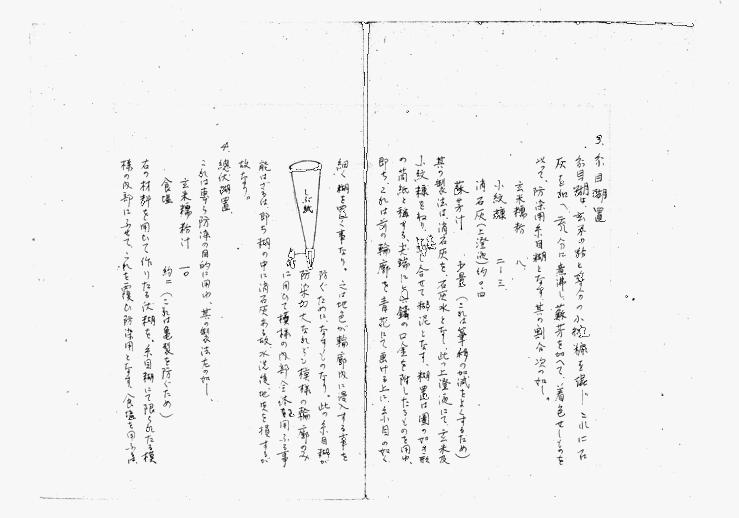 3. 糸目糊置
糸目糊は、玄米の粉と等分の小紋糠を混じこれに石
灰を加へ充分に煮沸し蘇芳を加へて着色せしものを
以って、防染用糸目糊となす、其の割合次の如し。
玄米糯粉 八
小紋糠 二ー三
消石灰(上澄液)約〇.四
蘇芳汁 少量(これは筆精の加減をよくするため)
其の製法は、消石灰を石灰水となし、此の上澄液にて玄米及
小紋糠をねり、合せて糊泥となす、糊置は図の如き形
の筒紙と稱する尖端に錻の口金を附したるものを用ゆ、
即ち、これは前の輪廓を青花にて画ける上に、糸目の如く
細く糊を置く事なり。之は地色が輪廓内に浸入する事を
しぶ紙
防ぐためになすものなり。此の糸目糊が
防染力大なれども模様の輪廓のみ
に用ひて模様の内部全体を用ふる事
能はざるは、即ち糊の中に消石灰ある故水洗後地質を損するが
故なり。
4. 總伏糊置
これは専ら防染の目的に用ゆ、其の製法左の如し、
玄米糯粉汁 一〇
食塩 約二(これは亀裂を防ぐため)
右の材料を用ひて作りたる伏糊を、糸目糊にて限られたる模
様の内部にふせて、これを覆ひ防染用となす、食塩を用ふるは、